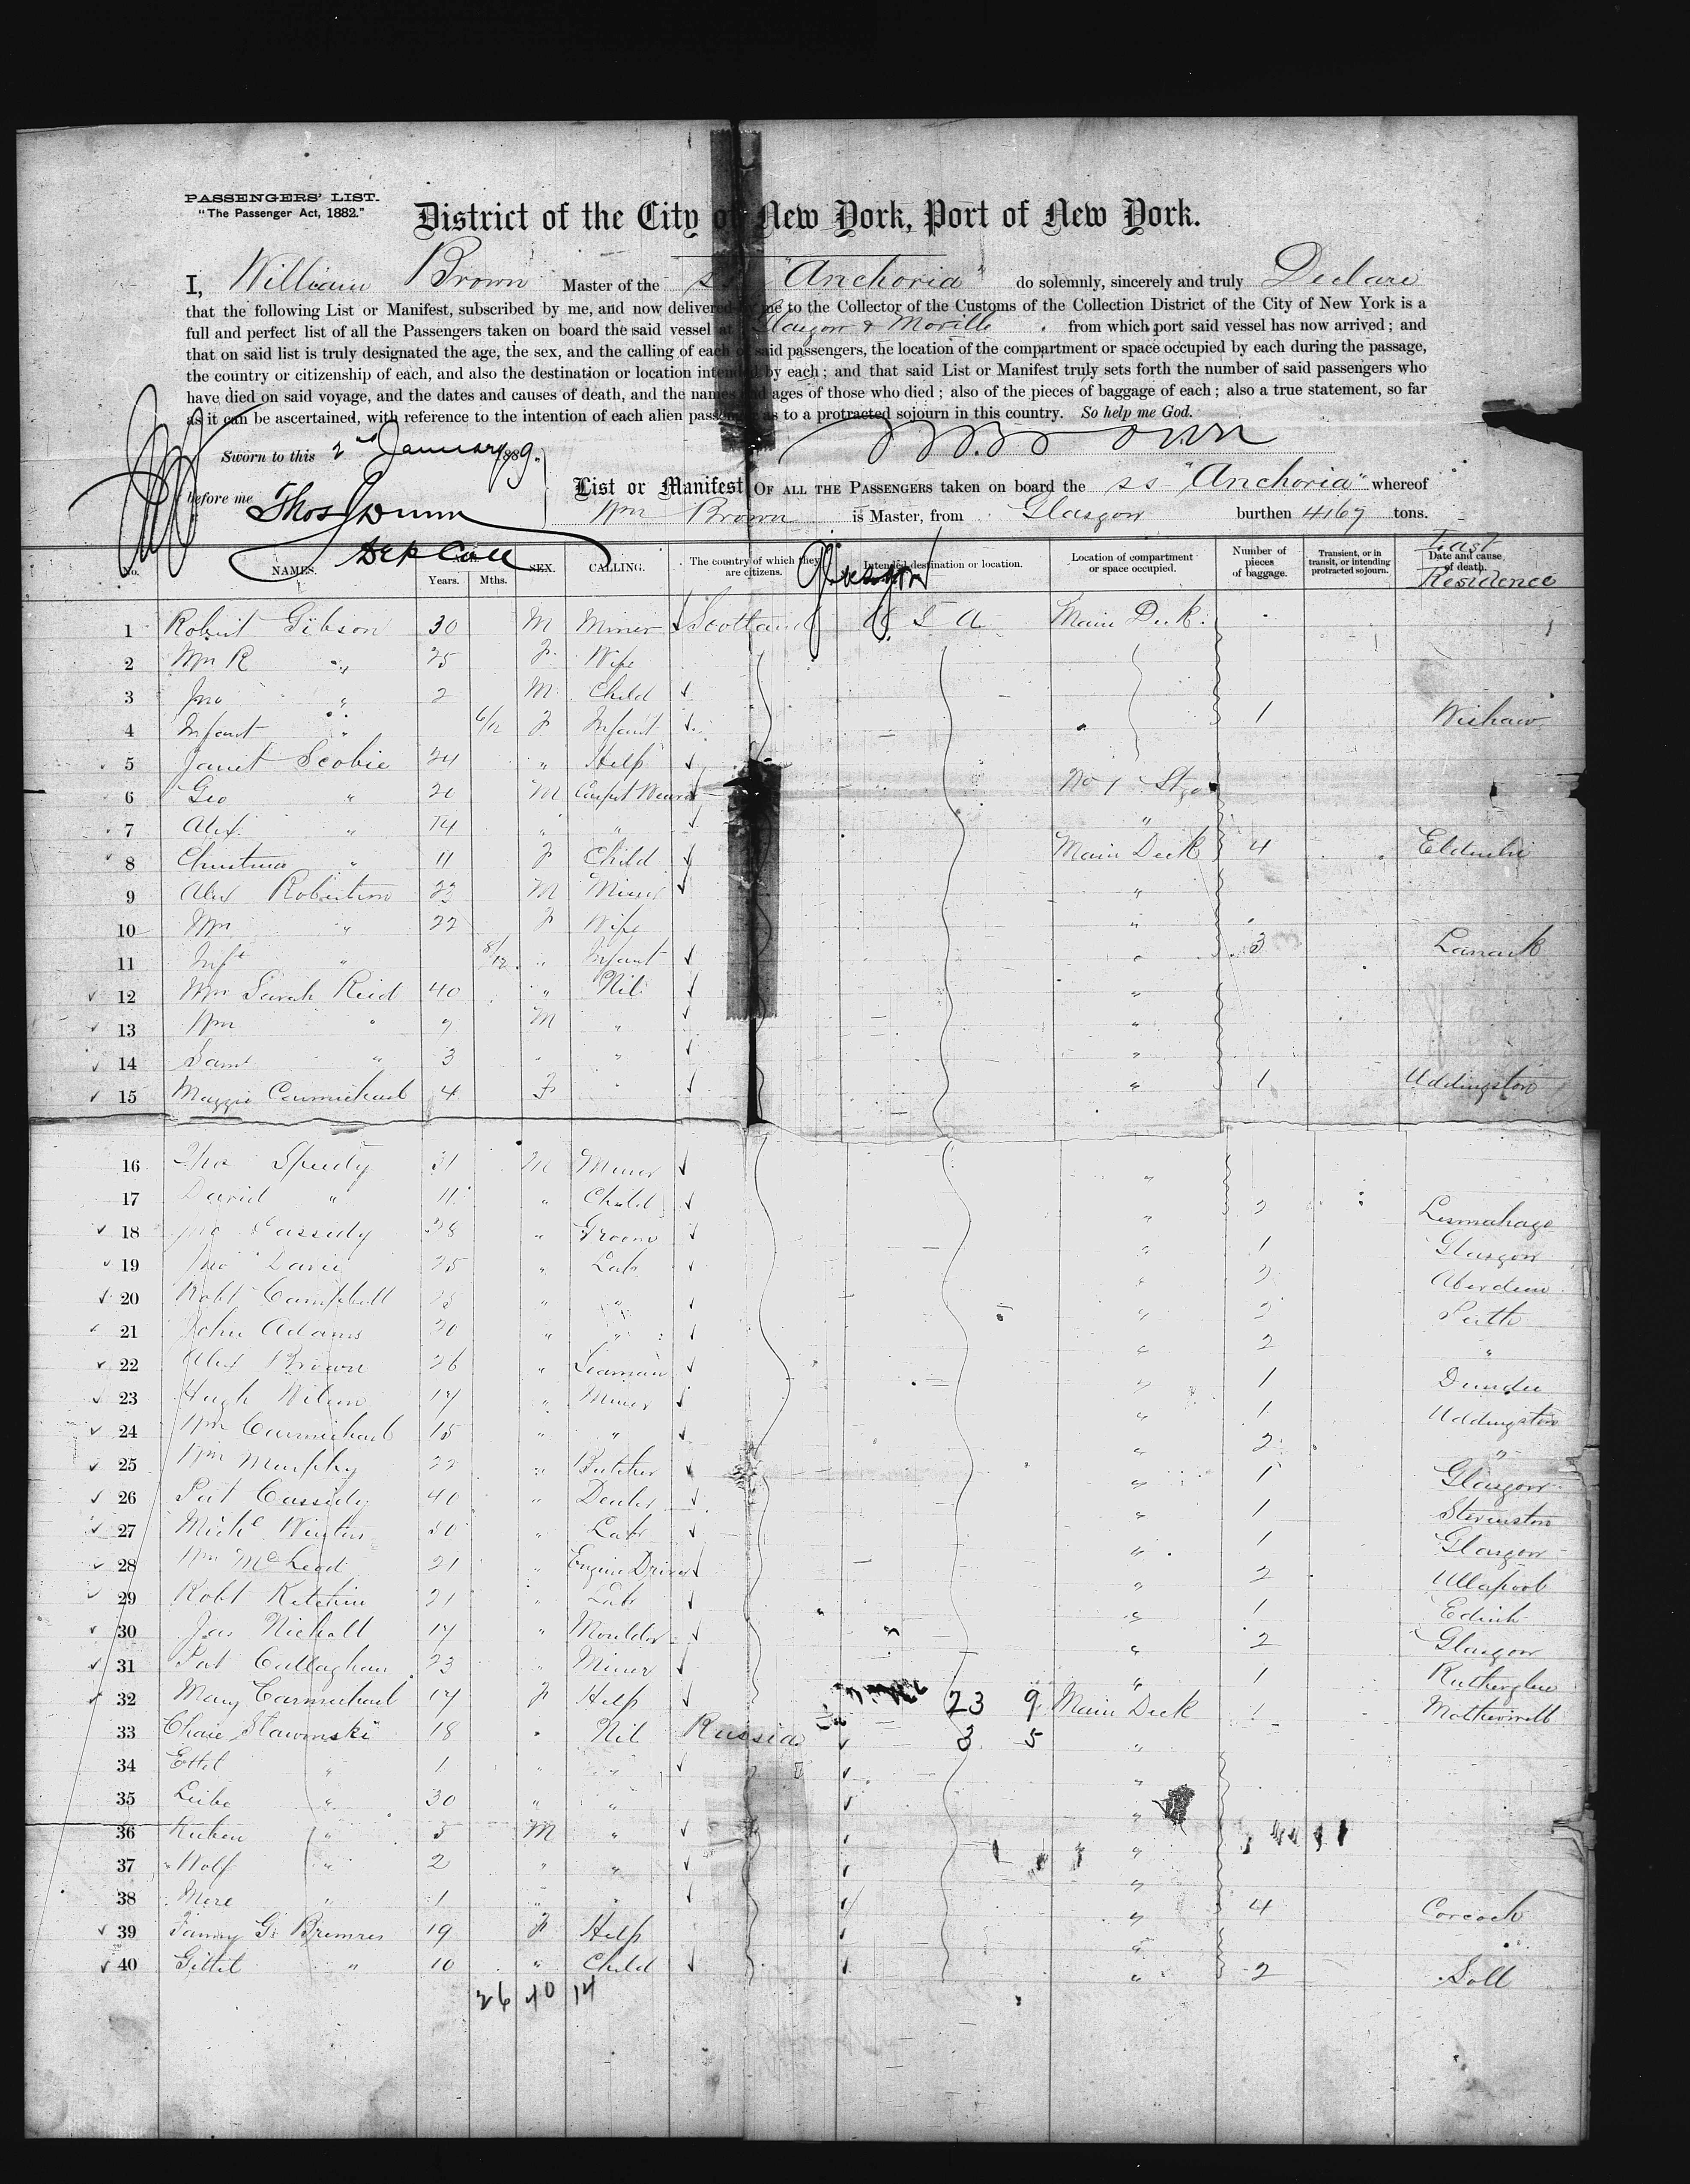 PASSENGERS' LIST.
"The Passenger Act, 1882."
District of the City of New York, Port of New York.
I, William Brown Master of the SS "Anchoria" do solemnly, sincerely and truly Declare
that the following List or Manifest, subscribed by me, and now delivered by me to the Collector of the Customs of the Collection District of the City of New York is a
full and perfect list of all the Passengers taken on board the said vessel at Glasgow & Moville from which port said vessel has now arrived; and
that on said list is truly designated the age, the sex, and the calling of each of said passengers, the location of the compartment or space occupied by each during the passage,
the country or citizenship of each, and also the destination or location intended by each; and that said List or Manifest truly sets forth the number of said passengers who
have died on said voyage, and the dates and causes of death, and the names and ages of those who died; also of the pieces of baggage of each; also a true statement, so far
as it can be ascertained, with reference to the intention of each alien passenger as to a protracted sojourn in this country. So help me God.
Sworn to this 2d January 1889.
W Brown
before me Thos J Dunn
Dep Coll
List or Manifest OF ALL THE PASSENGERS taken on board the ss "Anchoria" whereof
Wm Brown is Master, from Glasgow burthen 4167 tons.
No. NAMES. AGE. Years. Mths. SEX. CALLING. The country of which they are citizens. Intended destination or location. Location of compartment or space occupied. Number of pieces of baggage. Transient, or in transit, or intending protracted sojourn. Date and cause of death. Last Residence
Glasgow
1 Robert Gibson 30 M Miner Scotland U S A Main Deck
2 Mrs R " 25 F Wife
3 Jno " 2 M Child
4 Infant " 6/12 F Infant 1 Wishaw
5 Janet Scobie 24 " Help
6 Geo " 20 M Carpet Weaver No 1 Stge
7 Alex " 14 " " "
8 Christina " 11 F Child Main Deck 4
9 Alex Robertson 23 M Miner "
10 Mrs " 22 F Wife "
11 Inft " 8/12 " Infant " 3 Lanark
12 Mrs Sarah Reid 40 " Nil "
13 Wm " M " "
14 Saml " 3 " " "
15 Maggie Carmichael 4 F " " 1 Uddingston
16 Thos Speedy 31 M Miner "
17 David " 11 " Child " 2 Lesmahago
18 Jno Cassidy 28 " Groom " 1 Glasgow
19 25 " Lab " 2 Aberdeen
20 Robt Campbell " " " 2 Perth
21 John Adams 20 " " " 2 "
22 Alex Brown 26 " Seaman " 1 Dundee
23 Hugh Wilson 17 " Miner " 1 Uddingston
24 Wm Carmichael 18 " " " 2 "
25 Wm Murphy 22 " Butcher " 1 Glasgow
26 Pat Cassidy 40 " Dealer " 1 Stevenston
27 Michl Winters 30 " Lab " 1 Glasgow
28 Wm McLeod 21 " Engine Driver " 2 Ullapool
29 Robt Kitchin 21 " Lab " 1 Edinb
30 Jas Nicholl 17 " Moulder " 2 Glasgow
31 Pat Callaghan 23 " Miner " 1 Rutherglen
32 Mary Carmichael 17 F Help 23 9 Main Deck 1 Motherwell
33 Chaie Slawinski 18 " Nil Russia 3 5 "
34 Ettel " 1 " " "
35 Leibe " 30 " " "
36 Ruben " 5 M " "
37 Wolf " 2 " " "
38 Mere " 1 " " " 4
39 Fanny G. 19 F Help "
40 Gittel " 10 " Child " 2
26 40 14